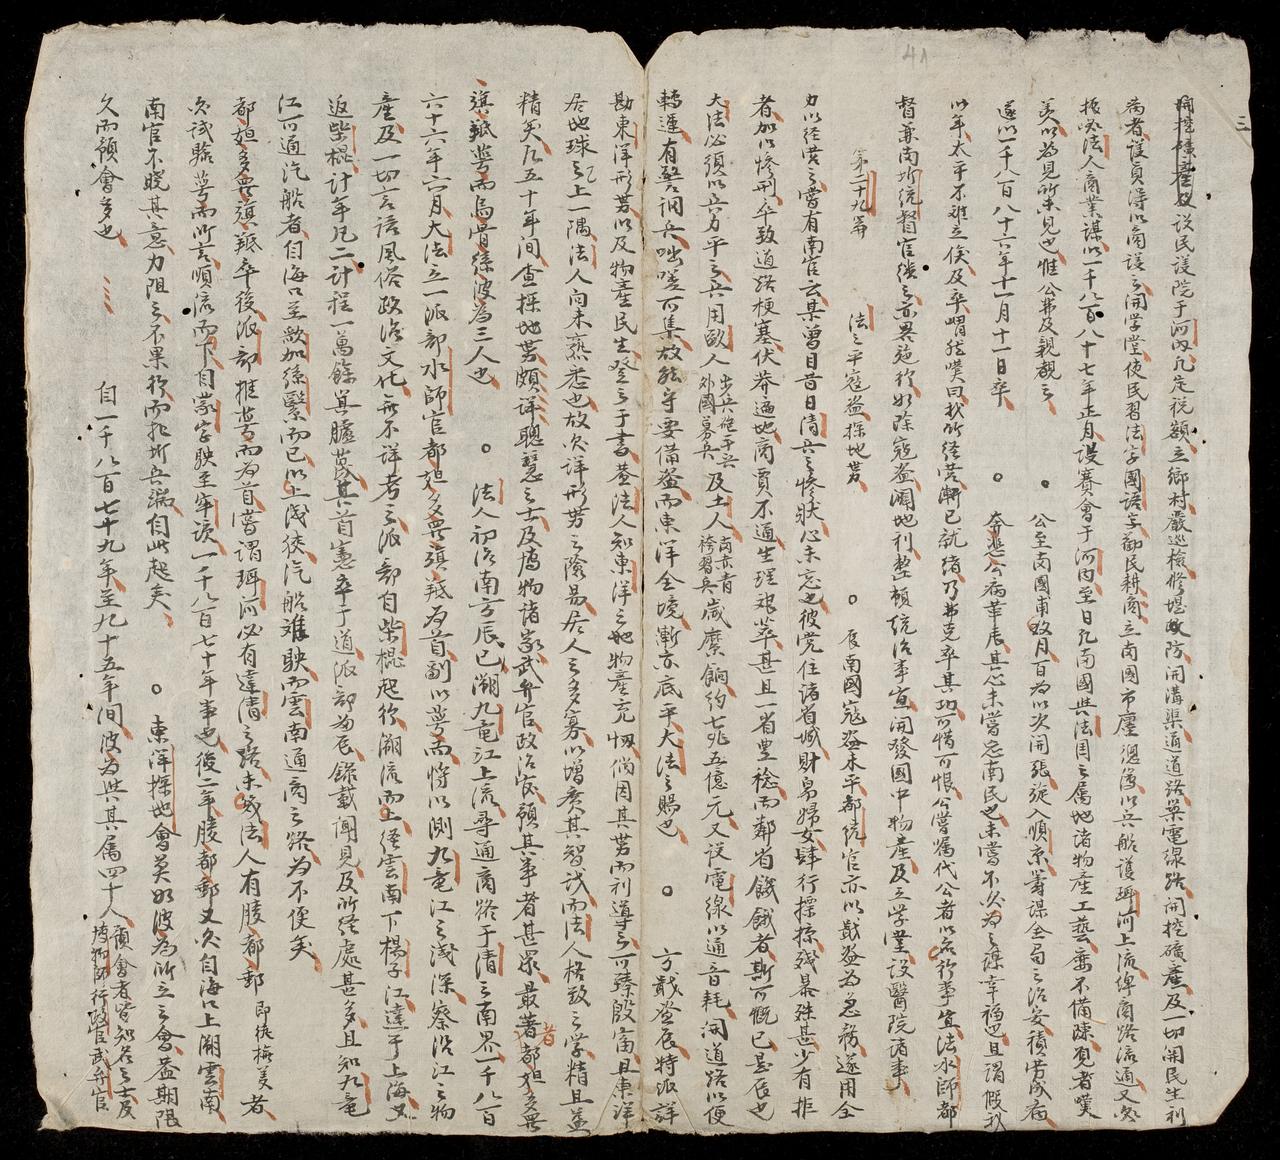 設民議院于河內凡定稅額立鄉村嚴巡檢修堤政防開溝渠通道路築電線路開挖礦產及一切開民生利
病者議員得以商議之開学堂使民習法字國語字勸民耕商立南國市廛總㑹以兵船護珥河上流俾商路流通又欲
振起法人商業謀以一千八百八十七年正月設賽會于河內至日凡南國與法国之属地諸物產工藝壹不備陳覓者嘆
美以為見所未見也惟公弗及親覩之 公至南國甫政月百為以次開張旋入順京籌謀全局之治安積勞成病
遂以一千八百八十六年十一月十一日卒 奔悲公病革辰其心未嘗忘南民也未嘗不欲為之謀幸福也且謂假我
以年太平不难立俟及卒喟然嘆曰我所経営漸已就緒乃弗克卒其功可惜可恨公嘗嘱代公者以名行事宜法水師都
督兼尚所統督官績之亦畧施行如除寇盜濶地利整頓統治事宜開發國中物產及立学堂設醫院諸事
第二十九篇 法之平寇盜探地势 辰南國寇盜未平都統官亦以戢盜為急務遂用全
力以経営之嘗有南官云某曽目昔日清兵之惨狀心未忘也彼党住諸省城財帛婦女肆行擄掠殘暴殊甚少有拒
者加以惨刑卒致道路梗塞伏莽遍地商賈不通生理艰萃甚且一省豊稔而鄰省饑餓者斯可慨已是辰也
大法必須以兵力平之兵用歐人 出兵役平兵外國募兵 及土人 両赤青袴習兵 歲糜餉約七兆五億元又設電線以通音耗開道路以便
轉運有警調兵咄嗟可集故能守要備盜而東洋全境漸亦底平大法之賜也 方戢盜辰特派詳
勘東洋形势以及物產民生登之于書蓋法人知東洋之地物產充牣倘因其势而利導之可臻殷富且東洋
居地球之上一隅法人向未熟悉也故欲詳形势之險易居人之多寡以增廣其智識而法人格致之学精且益
精矣凡五十年間查探地势頗詳聰慧之士及博物諸家武弁官政治家領其事者甚衆最著者都妲多無
旗羝蕚而烏骨孫波為三人也 法人初治南方辰已溯九竜江上流尋通商路于清之南界一千八百
六十六年六月大法立一派部水師官都妲多無旗羝為首副以蕚而将以測九竜江之浅深察沿江之物
產及一切言語風俗政治文化無不詳考之派部自柴棍起行溯流而上経雲南下揚子江達于上海又
返柴棍計年凡二計程一萬餘其臚茂其首憲卒于道派部為辰錄載聞見及所経處甚多且知九竜
江可通汽船者自海口至歎加孫緊而已以上浅狹汽船难駛而雲南通商之路為不便矣
都妲多無旗羝卒後派部推蕚而為首嘗謂珥河必有達清之路未幾法人有䏻都郵 即徒梅美 者
欲試驗蕚而所言順流而下自蒙字駛至牢該一千八百七十年事也後二年䏻都郵又欲自海口上溯雲南
南官不曉其意力阻之不果行而北圻兵端自此起矣 東洋探地會莫如波為所立之會益期限
久而領會多也 自一千八百七十九年至九十五年間波為與其属四十人 領會者皆知名之士及博物師行政官武弁官